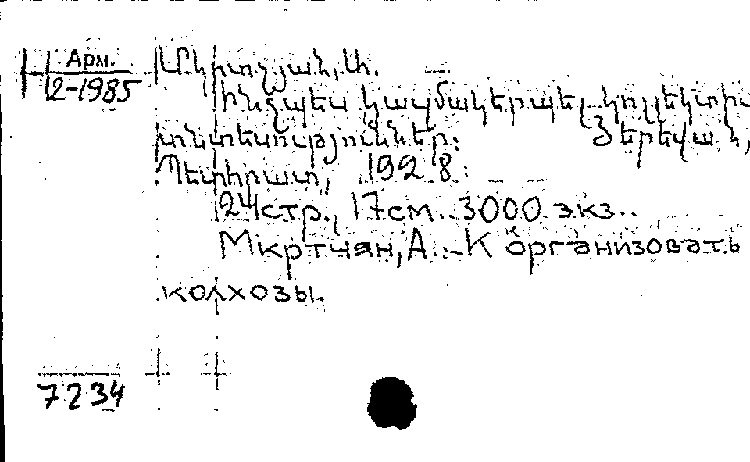 Арм.
2-1985
Մկրտչյան, Ա.
Ինչպես կազմակերպել կոլեկտիվ
տնտեսություններ: Յերեվան,
Պետհրատ, 1928.
24 стр., 17 см. 3000 экз.
Мкртчян, А. - К организовать
колхозы.
7234